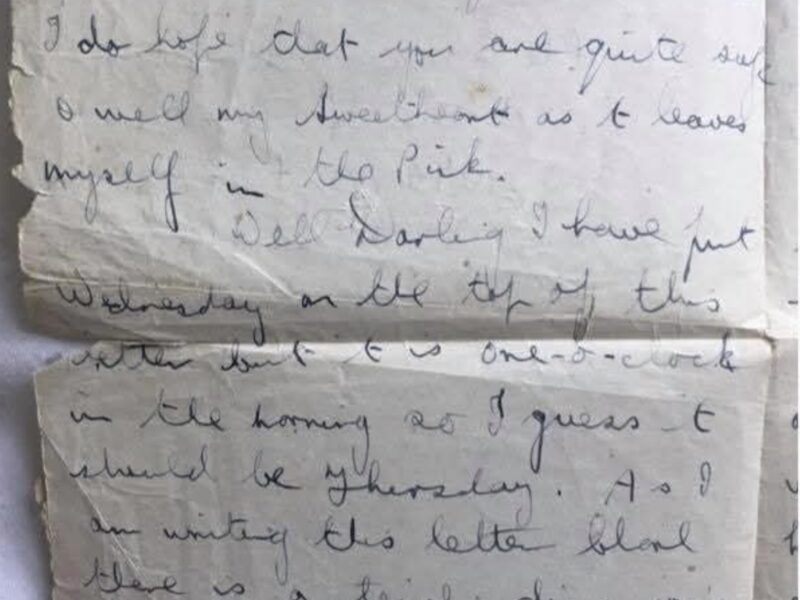 I do hope that you are quite safe
& well my Sweetheart as it leaves
myself in the Pink.
Well Darling I have put
Wednesday on the top of this
letter but it is one-o-clock
in the morning so I guess it
should be Thursday. As I
am writing this letter
there is a